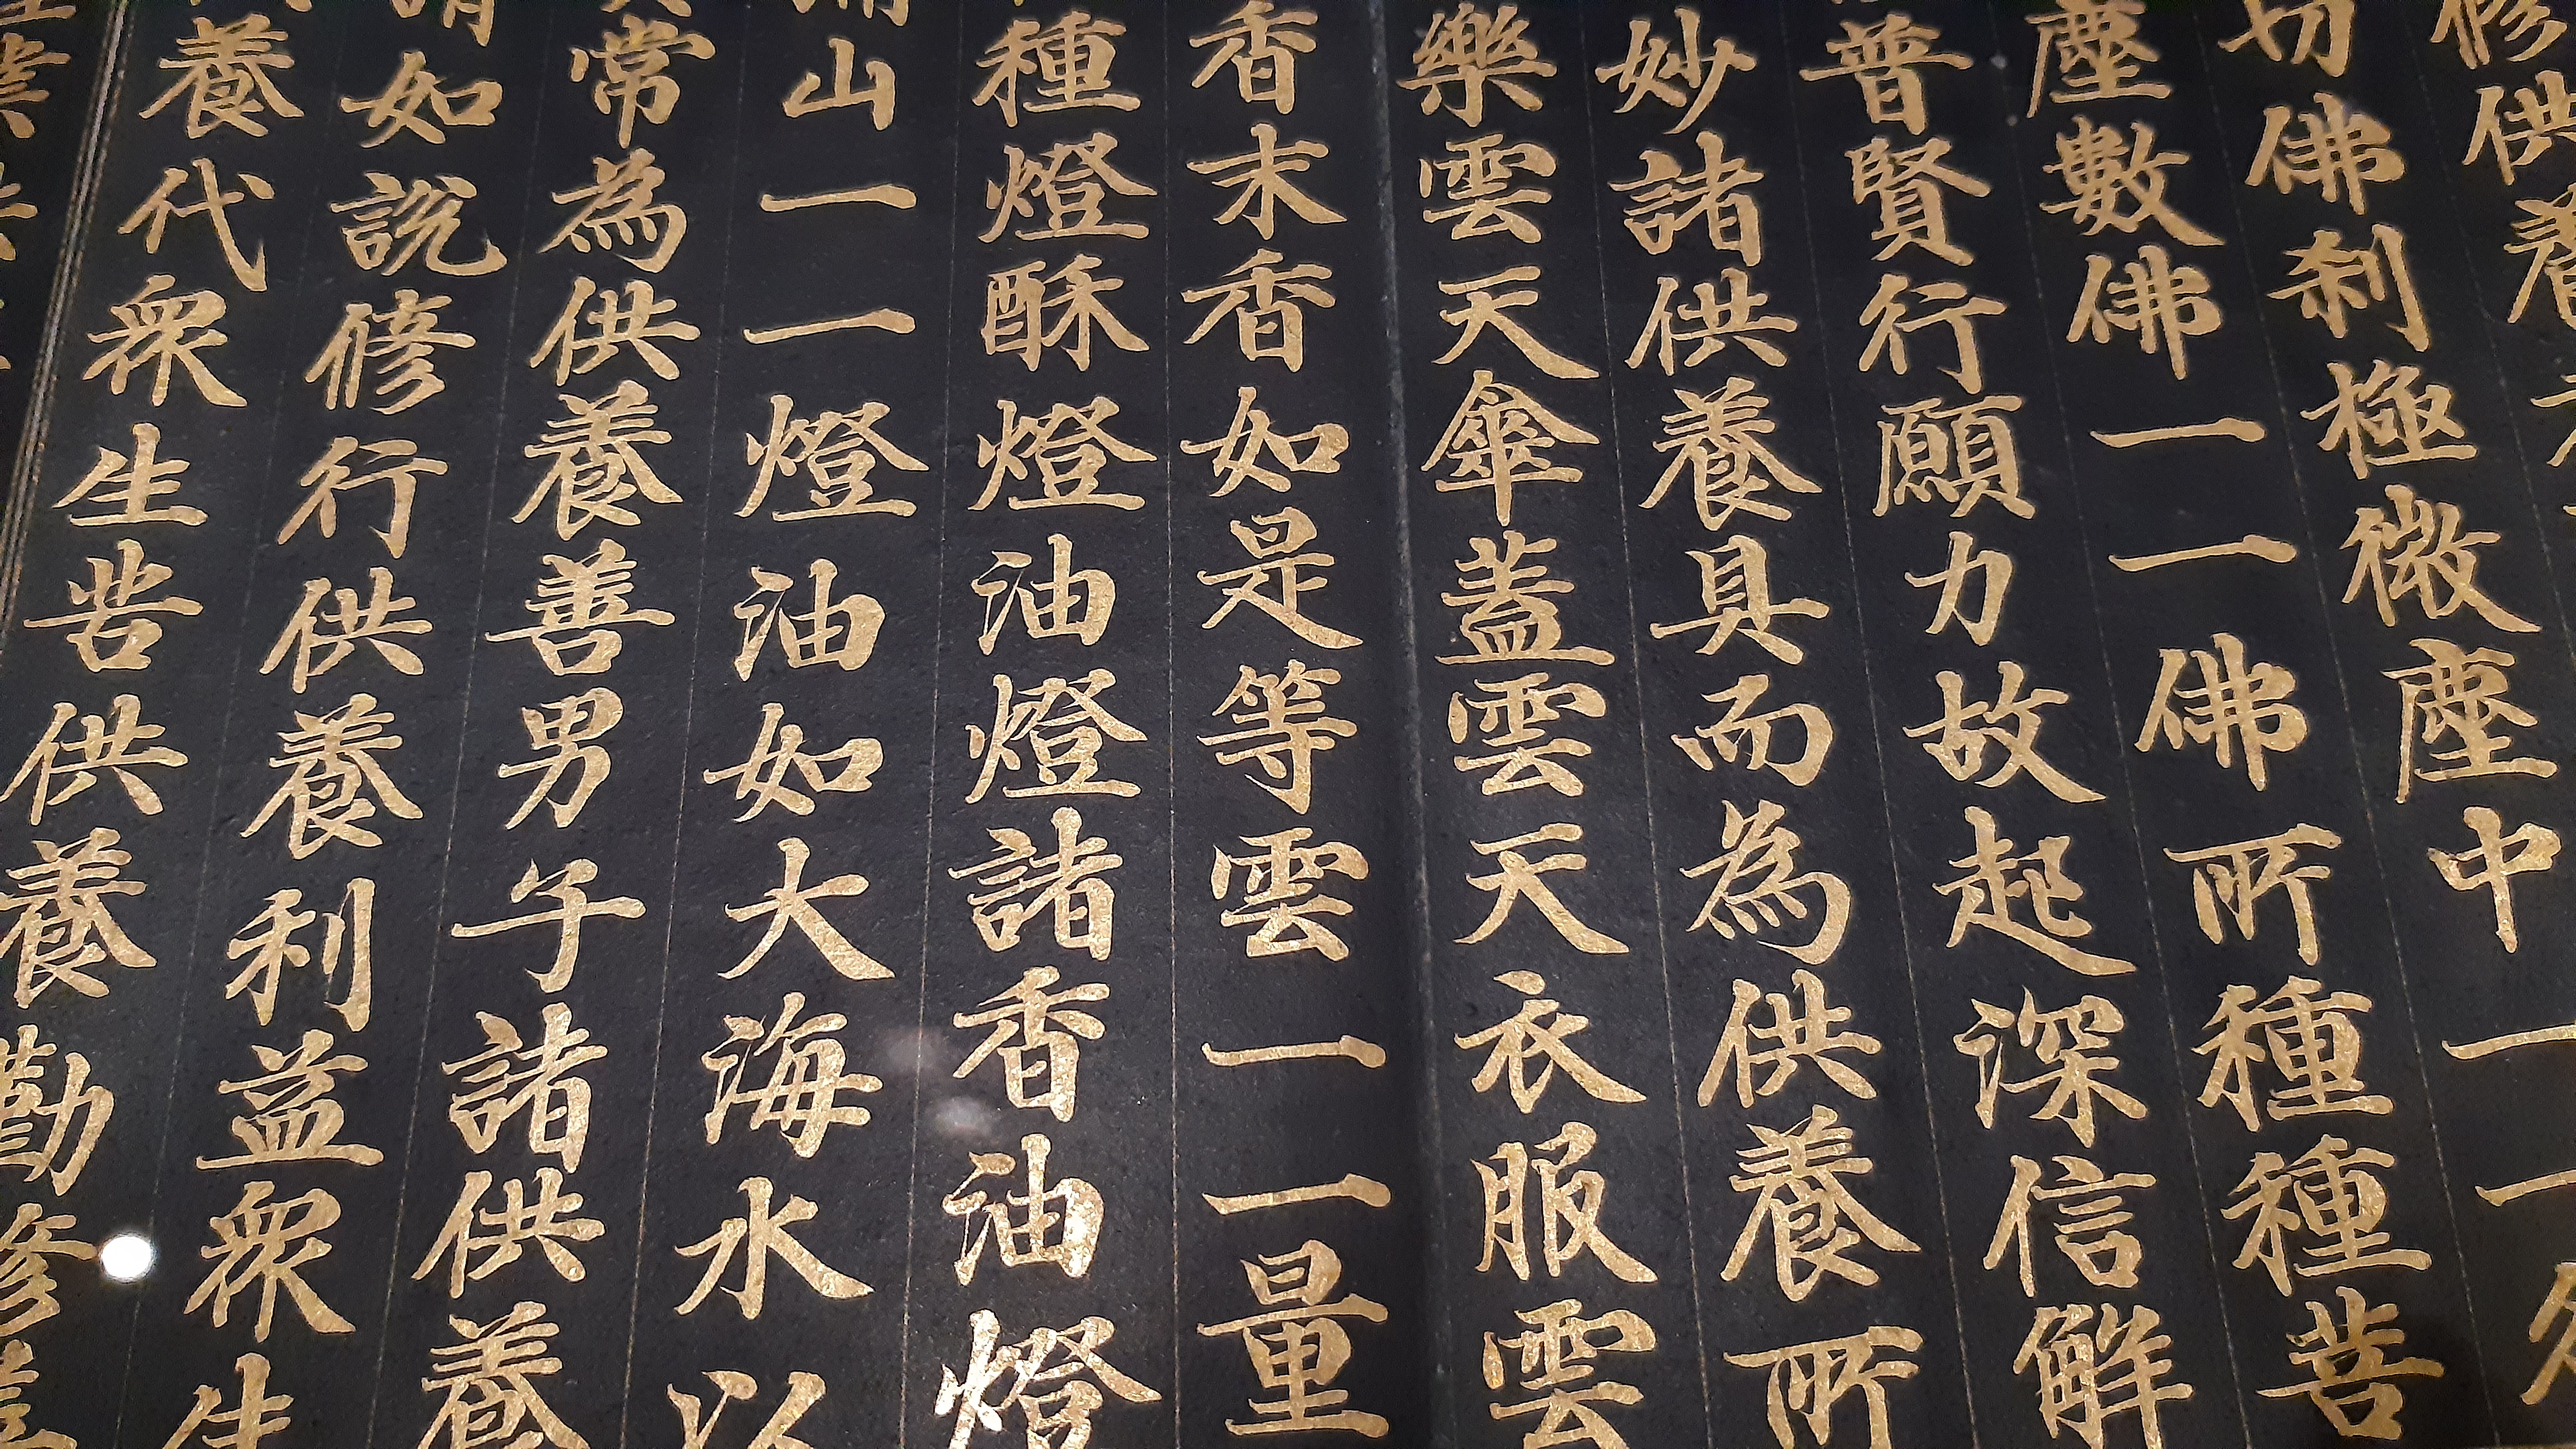 修供養
切佛刹極微塵中一一
塵數佛一一佛所種種菩
普賢行願力故起深信解
妙諸供養具而為供養所
樂雲天傘蓋雲天衣服雲
香末香如是等雲一一量
種燈酥燈油燈諸香油燈
山一一燈油如大海水以
常為供養善男子諸供養
如說修行供養利益眾生
養代眾生苦供養勤修